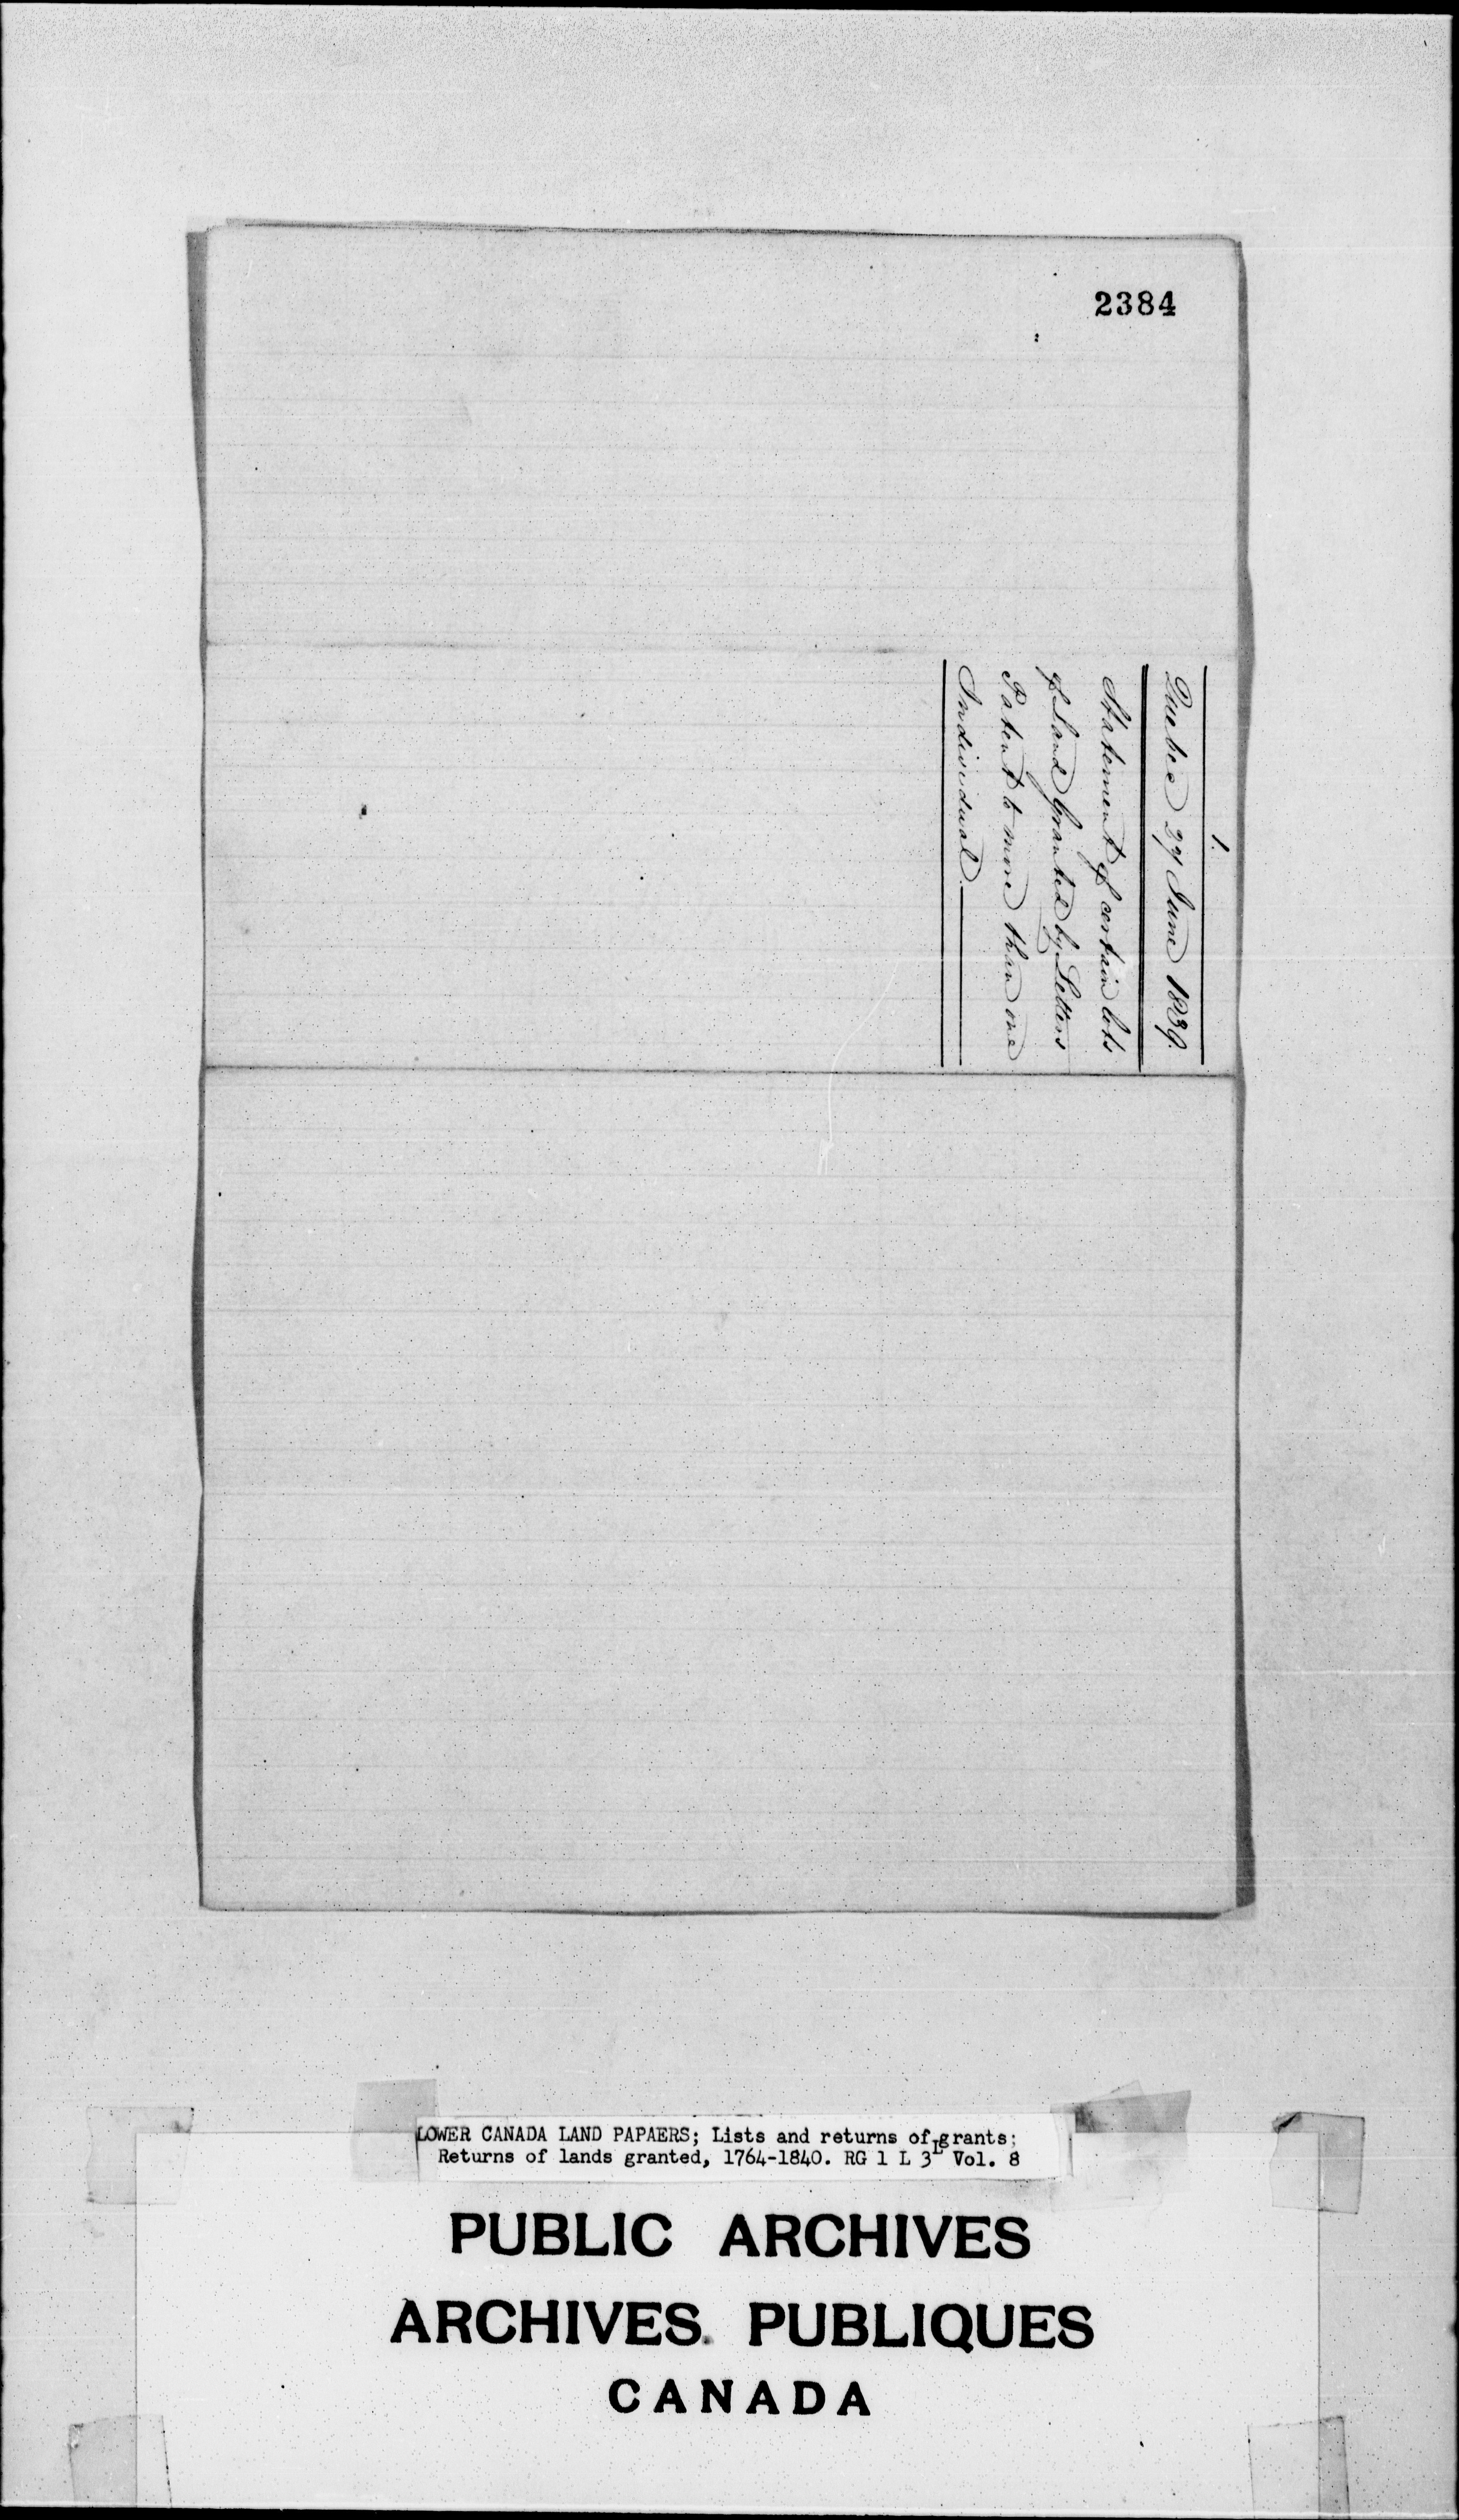 2384
1.
Quebec 27 June 1839.
Statement of certain lots
of Land Granted by Letters
Patent to more than one
Individual.
LOWER CANADA LAND PAPAERS; Lists and returns of grants;
Returns of lands granted, 1764-1840. RG 1 L 3L Vol. 8
PUBLIC ARCHIVES
ARCHIVES PUBLIQUES
CANADA